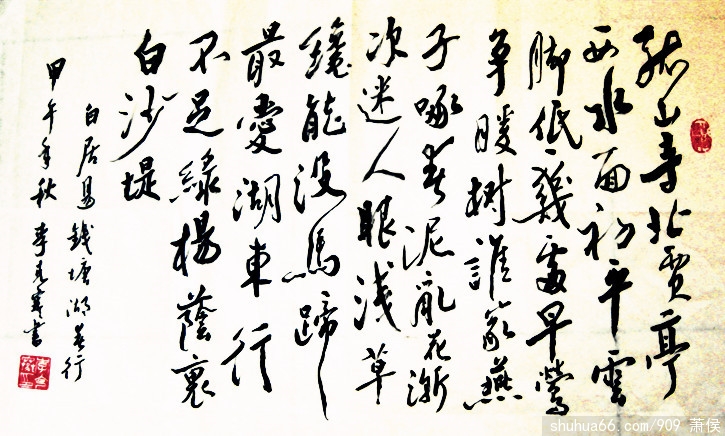 孤山寺北賈亭
西水面初平雲
脚低幾處早鶯
爭暖樹誰家燕
子啄春泥亂花漸
次迷人眼淺草
纔能没馬蹄
最愛湖東行
不足緑楊蔭裏
白沙堤
白居易錢塘湖春行
甲午年秋李書
shuhua66.com/909 萧侯